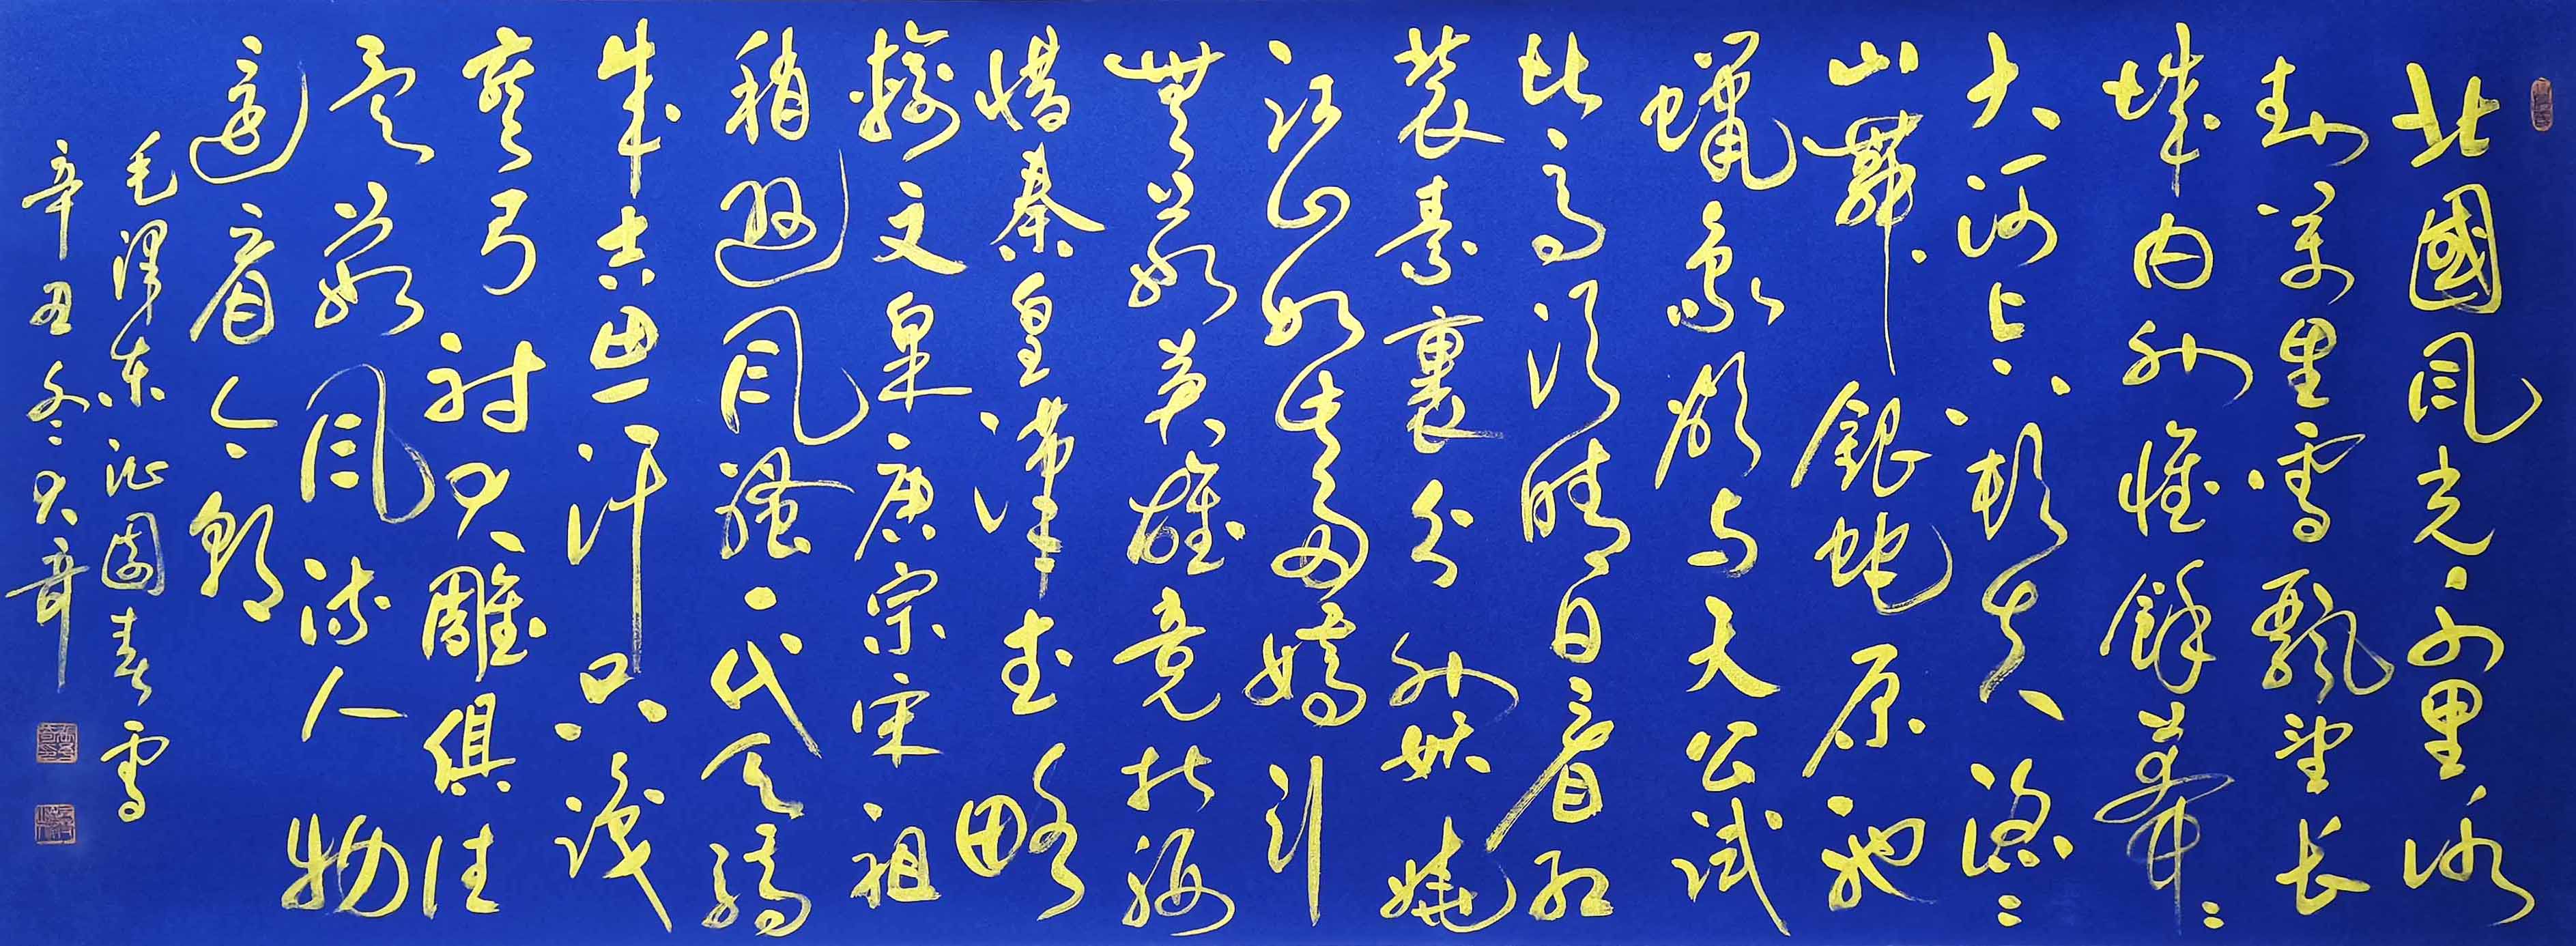 北國風光千里冰
封萬里雪飄望長
城内外惟餘莽〻
大河上下頓失滔〻
山舞銀蛇原馳
蠟象欲与天公試
比高須晴日看紅
裝素裹分外妖嬈
江山如此多嬌引
無數英雄競折腰
惜秦皇漢武略
輸文采唐宗宋祖
稍遜風騷一代天驕
成吉思汗只識
彎弓射大雕俱往
矣數風流人物
還看今朝
毛澤東沁園春雪
辛丑冬